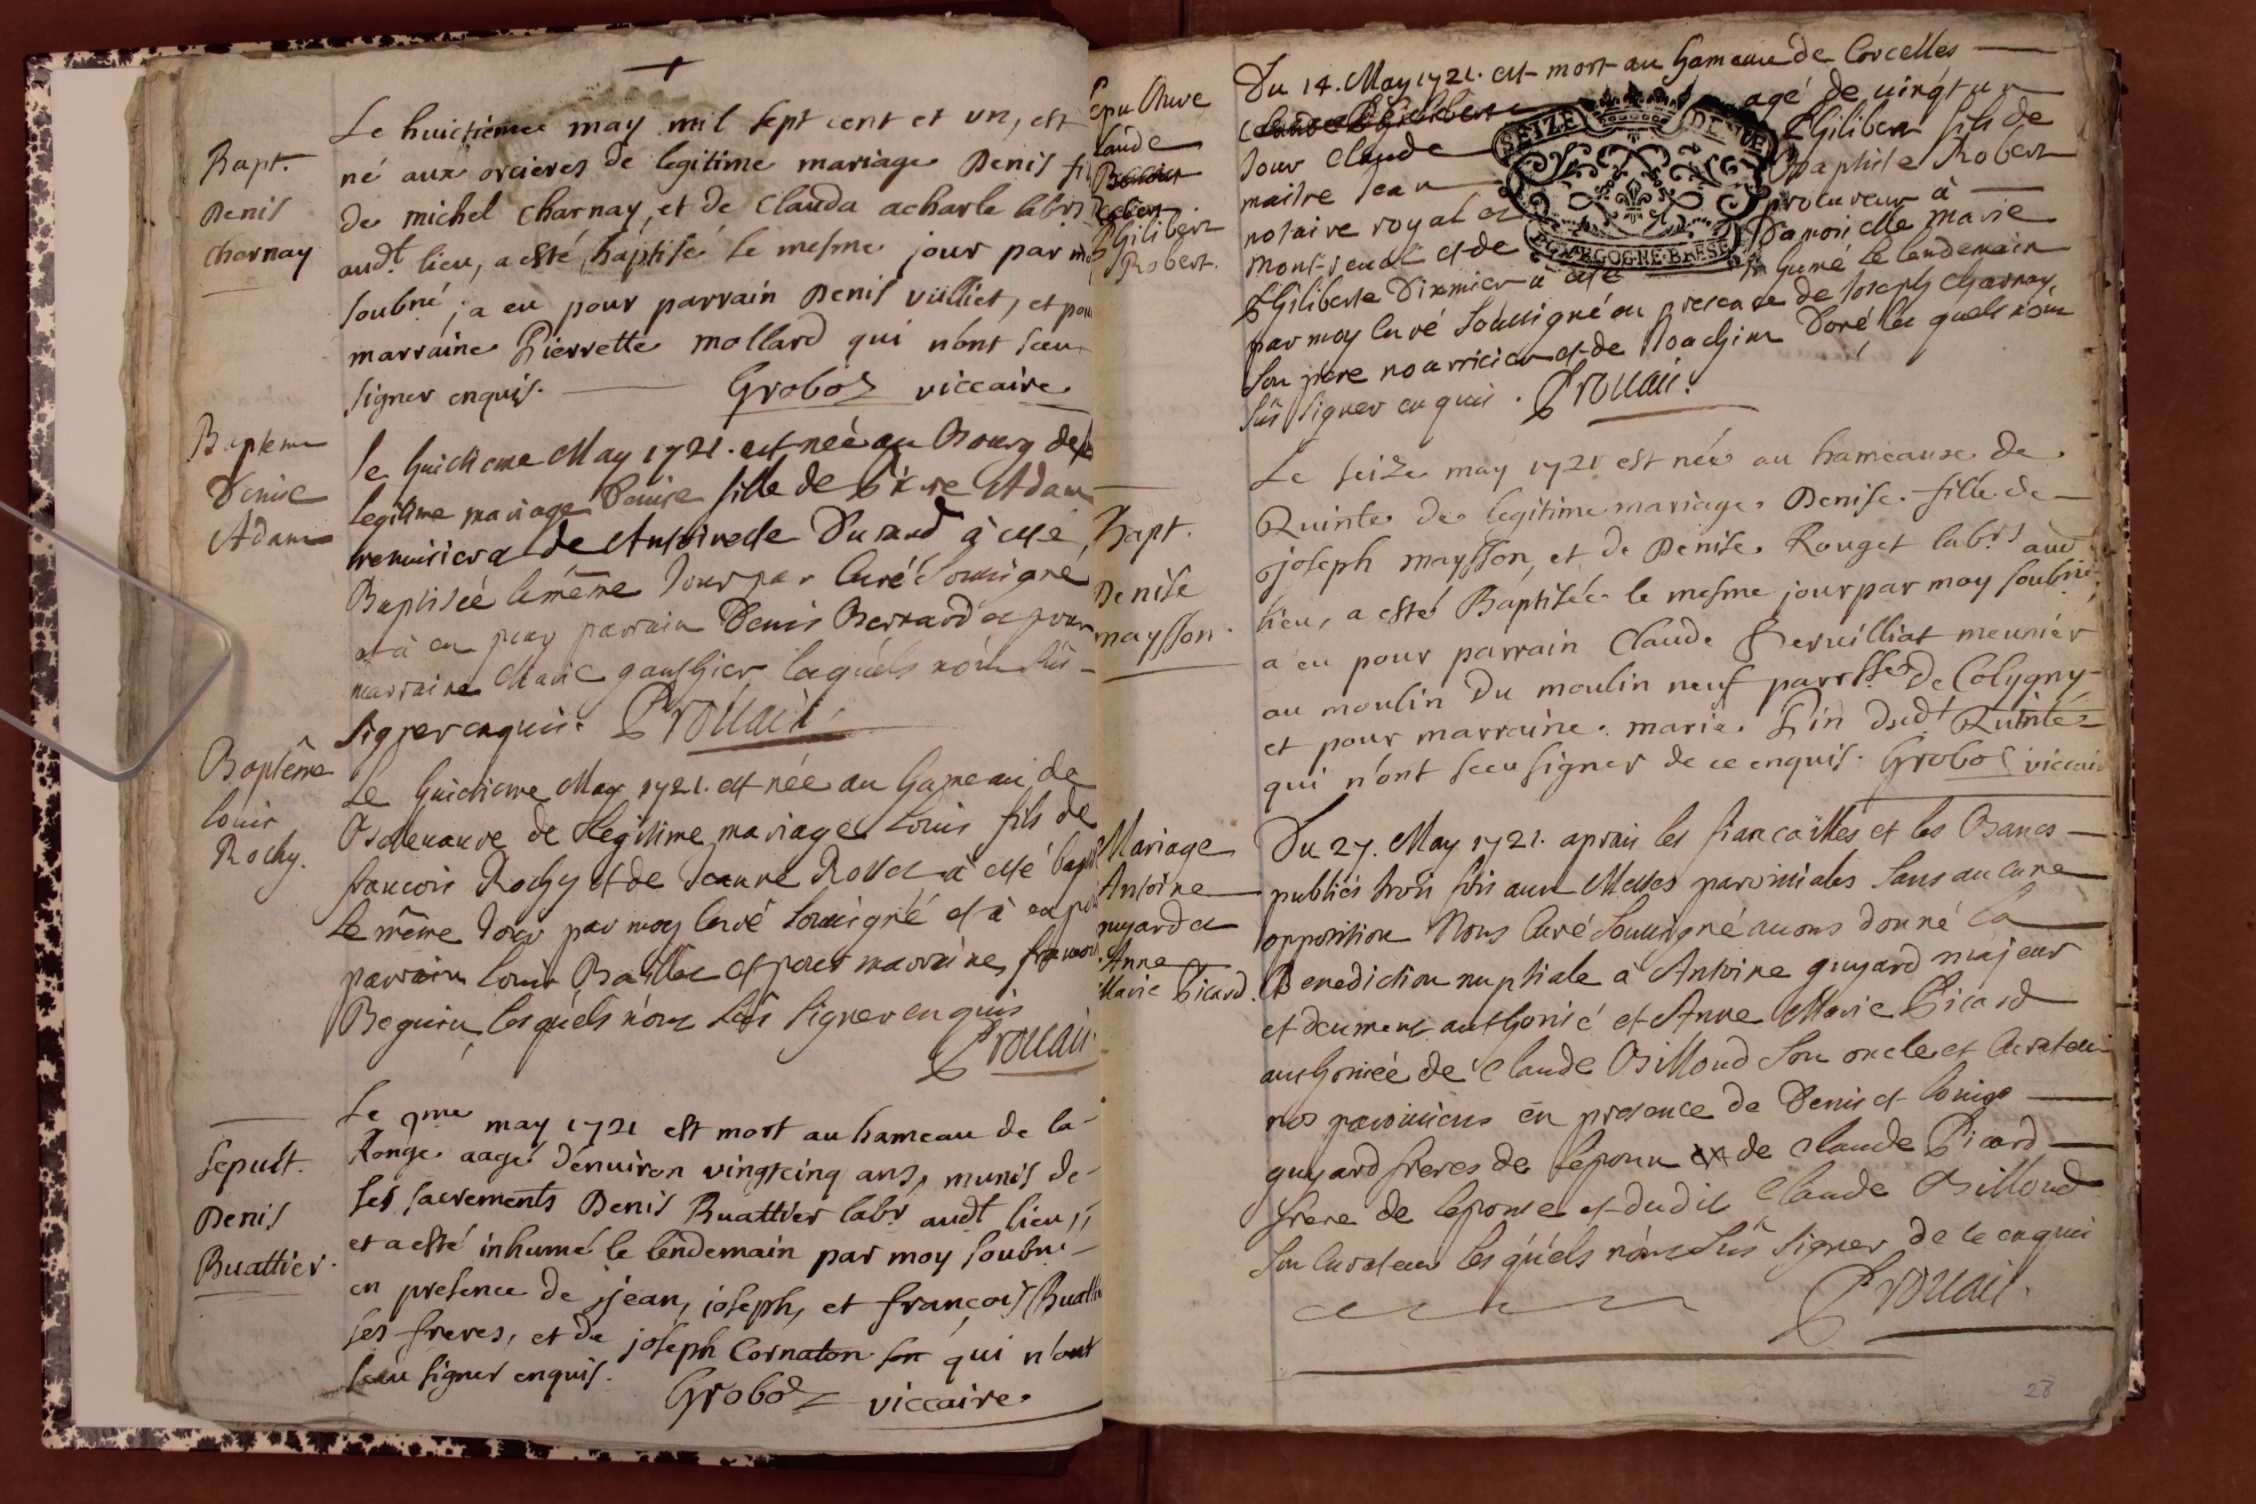 Bapt.
Denis
Charnay
Le huictiéme may mil sept cent et un, est
né aux orcieres de legitime mariage Denis
de michel Charnay, et de Clauda acharle labrs
audt. lieu, a esté baptisé le mesme jour par
soubné, a eu pour parrain Denis vulliet, et pour
marraine Pierrette mollard qui n'ont sceu
signer enquis. Groboz viccaire
Bapteme
Denise
Adam
le huictieme May 1721. est neé au Bourg de
legitime mariage Denise fille de Adam
et de Antoinette Durand à esté
Baptiseé le même Jour par Curé Soussigné
et à eu pour parrain Denis Bernard et pour
marraine Marie gauthier lesquels n'ont sus
signer enquis. Prouair
Baptême
louis
Rochy.
Le huictieme May 1721. est née au hameau de
de legitime mariage Louis fils de
francois Rochy et de Jeanne à esté
le même Jour par moy Curé Soussigné et à eu
parrain louis et pour marraine
Beguin, lesquels n'ont Sus signer enquis
Prouair
Sepult.
Denis
Buattier.
Le 9me may 1721 est mort au hameau de la
Ronge aagé d'enuiron vingtcinq ans, munis de
ses sacrements Denis Buattier labr. audt lieu,
et a esté inhumé le lendemain par moy soubné
en presence de jean, joseph, et françois
ses freres, et de joseph Cornaton qui n'ont
sceu signer enquis. Groboz viccaire.
Claude
Giliberz
Robert.
Du 14. May 1721. est mort au hameau de Corcelles
agé de vingt un
Jour Claude Giliberz fils de
maitre Jean Baptiste Robert
notaire royal et procureur à
Montreuel et de Damoiselle Marie
Giliberte à esté inhumé le lendemain
SEIZE DENIE
BOVRGOGNE·BRESSE
par moy Curé Soussigné en presence de Joseph Charnay
Son pere nourricier et de Joachim Doré les quels n'ont
Sus signer enquis. Prouair.
Bapt.
Denise
maysson
Le seize may 1721 est née au hameaux de
Quinte de legitime mariage Denise fille de
joseph maysson, et de Denise Rouget labrs aud
lieu, a esté Baptisée le mesme jour par moy soubné,
a eu pour parrain Claude Peruilliat meunier
au moulin Du moulin neuf parsse de Colygny
et pour marraine marie Pin dudt Quinte
qui n'ont sceu signer de ce enquis. Groboz viccair
Mariage
Antoine
guyard et
Anne
Marie Picard.
Du 27. May 1721. aprais les fiancailles et les Bancs
publiés trois fois aux Messes paroissiales Sans aucune
opposition Nous Curé Soussigné auons donné la
Benediction nuptiale à Antoine guyard majeur
et deument authorisé et Anne Marie Picard
authoriseé de Claude Billoud Son oncle et Curateur
nos paroissiens en presence de Denis et louis
guyard freres de lepoux et de Claude Picard
frere de lepouse et dudit Claude Billoud
Son Curateur les quels n'ont Sus signer de ce enquis
Prouair.
28